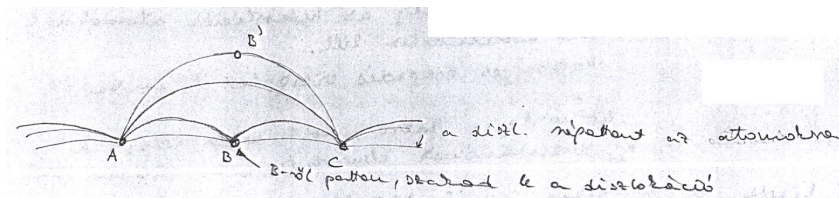 B'
A B C
a diszl. rápattant az atomokra
B-ről pattan, szakad le a diszlokáció